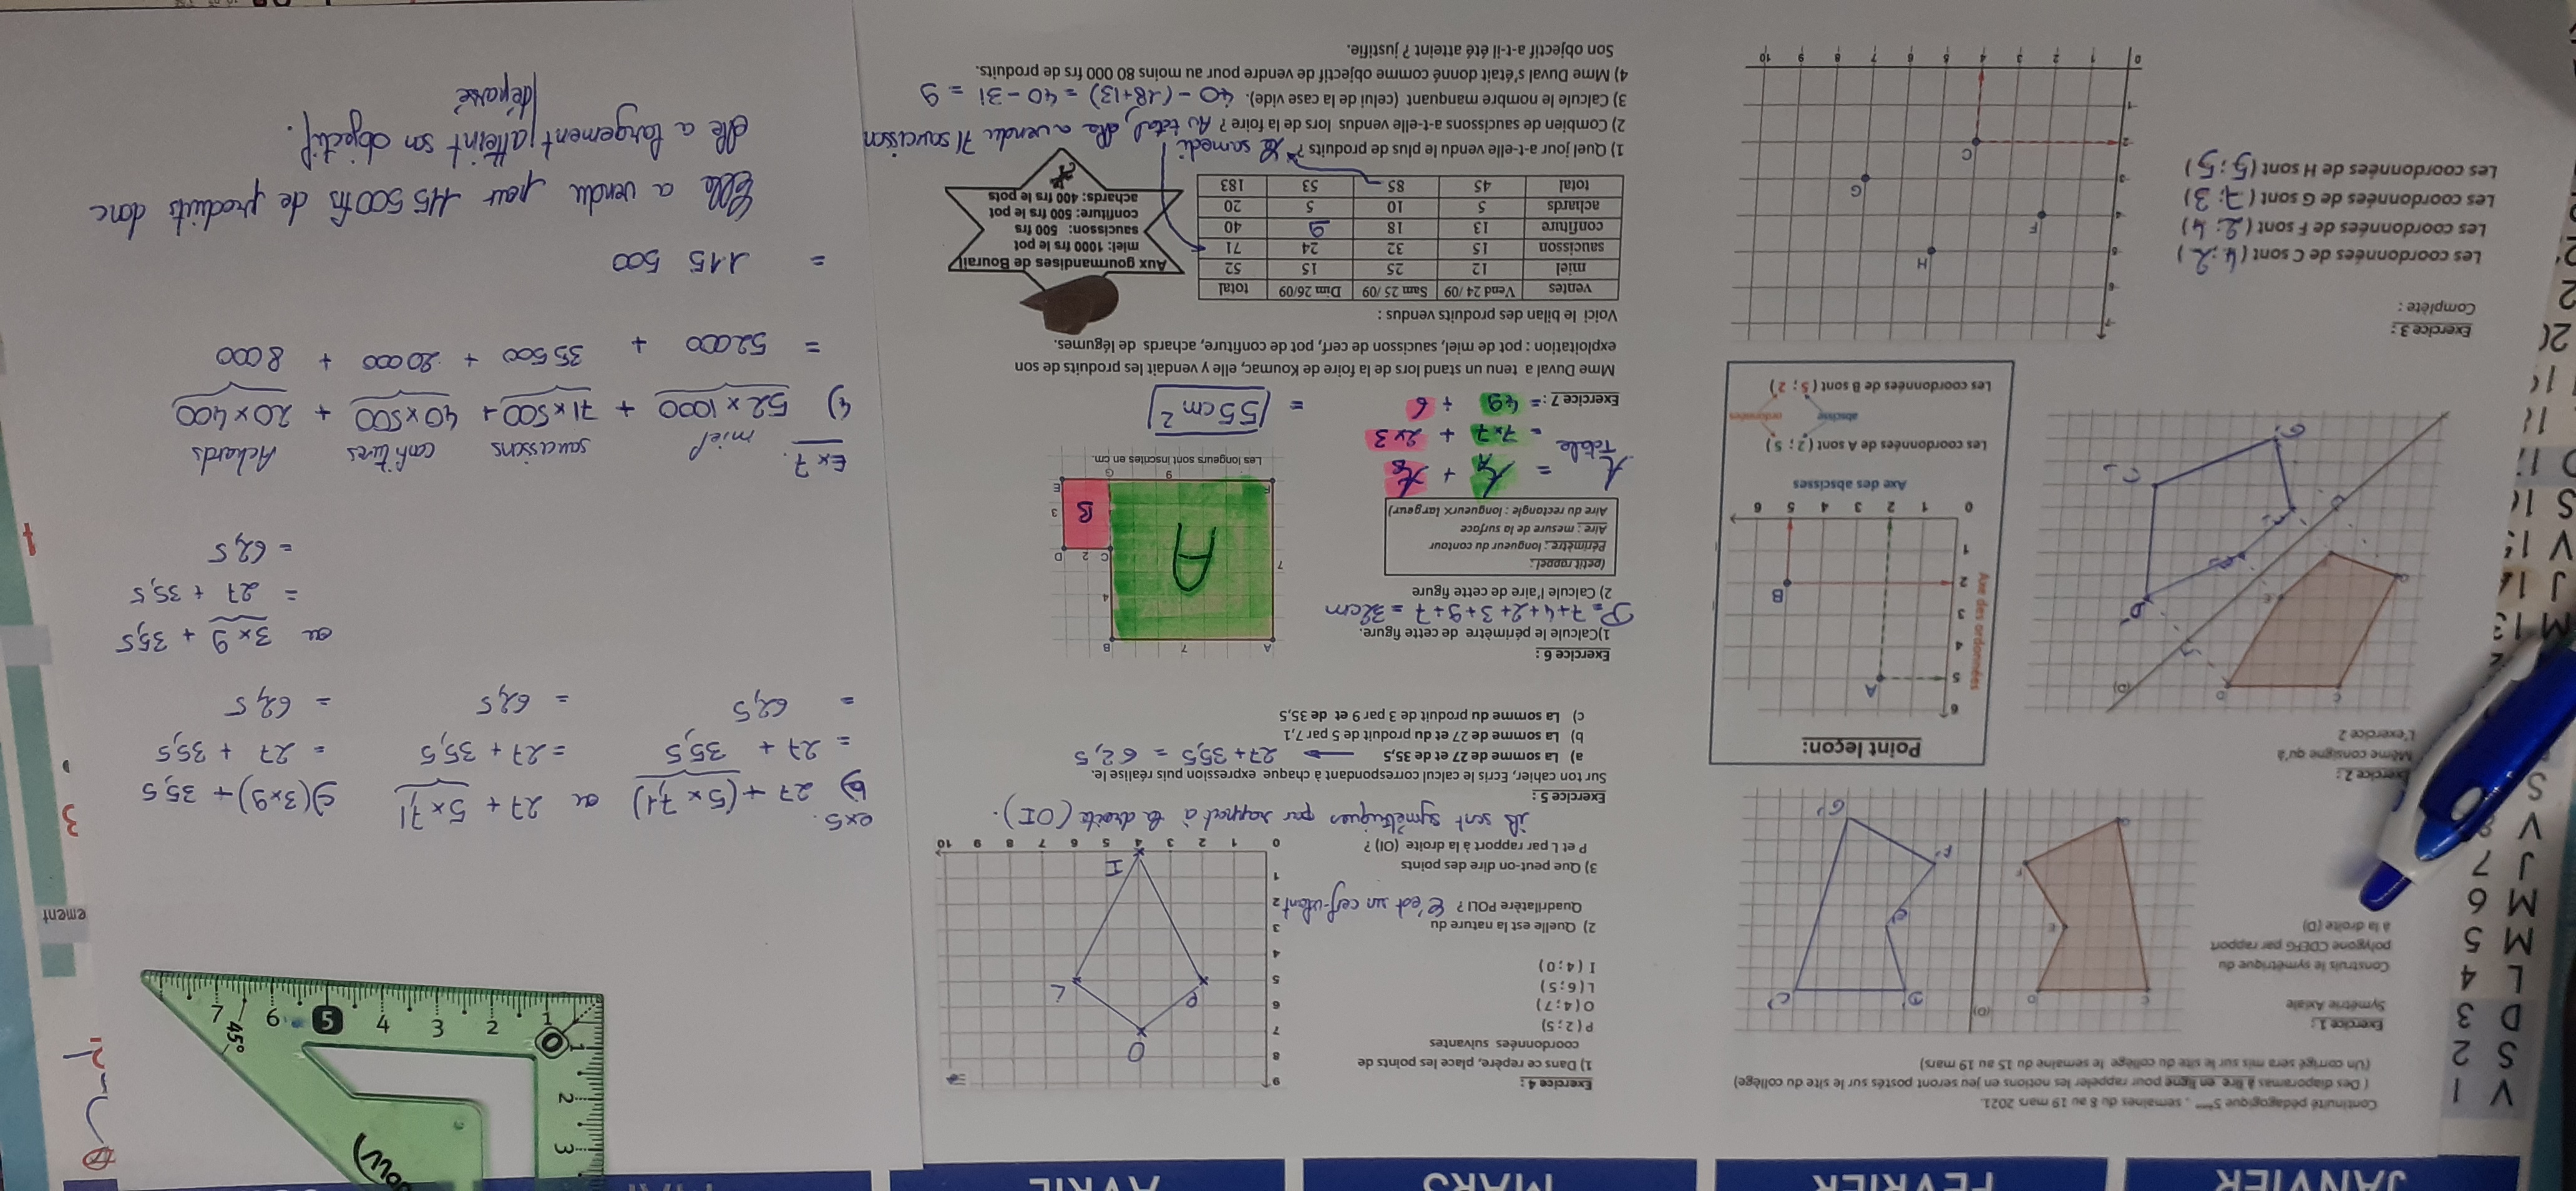 JANVIER
FEVRIER
MARS
AVRIL
V 1
S 2
D 3
L 4
M 5
M 6
J 7
V 8
S
M 13
J 14
V 15
S 16
D 17
Continuité pédagogique 5ème . semaines du 8 au 19 mars 2021.
( Des diaporamas à lire en ligne pour rappeler les notions en jeu seront postés sur le site du collège)
(Un corrigé sera mis sur le site du collège le semaine du 15 au 19 mars)
Exercice 1 :
Symétrie Axiale
Construis le symétrique du
polygone CDEFG par rapport
à la droite (D)
C D E F G
(D)
C' D' E' F' G'
Exercice 2 :
Même consigne qu'à
L'exercice 2
(D)
Point leçon:
Axe des ordonnées
6
5
4
3
2
1
A
B
0 1 2 3 4 5 6
Axe des abscisses
Les coordonnées de A sont ( 2 ; 5 )
abscisse ordonnées
Les coordonnées de B sont ( 5 ; 2 )
Exercice 3 :
Complète :
Les coordonnées de C sont ( 4 ; 2 )
Les coordonnées de F sont ( 2 ; 4 )
Les coordonnées de G sont ( 7 ; 3 )
Les coordonnées de H sont ( 5 ; 5 )
7
6
5
4
3
2
1
H
F
G
C
0 1 2 3 4 5 6 7 8 9 10
Exercice 4 :
1) Dans ce repère, place les points de
coordonnées suivantes
P ( 2 ; 5)
O ( 4 ; 7 )
L ( 6 ; 5 )
I ( 4 ; 0 )
2) Quelle est la nature du
Quadrilatère POLI ? C'est un cerf-volant
3) Que peut-on dire des points
P et L par rapport à la droite (OI) ?
ils sont symétriques par rapport à la droite (OI).
9
8
7
6
5
4
3
2
1
O
P
L
I
0 1 2 3 4 5 6 7 8 9 10
Exercice 5 :
Sur ton cahier, Ecris le calcul correspondant à chaque expression puis réalise le.
a) La somme de 27 et de 35,5 → 27+35,5 = 62,5
b) La somme de 27 et du produit de 5 par 7,1
c) La somme du produit de 3 par 9 et de 35,5
Exercice 6 :
1)Calcule le périmètre de cette figure.
P = 7+4+2+3+9+7 = 32cm
2) Calcule l'aire de cette figure
(petit rappel :
Périmètre : longueur du contour
Aire : mesure de la surface
Aire du rectangle : longueur× largeur)
A 7 B
4
7
A
C 2 D
B
3
F 9 G E
Les longueurs sont inscrites en cm.
A Totale = A A + A B
= 7×7 + 2×3
= 49 + 6 = 55cm²
Exercice 7 :
Mme Duval a tenu un stand lors de la foire de Koumac, elle y vendait les produits de son
exploitation : pot de miel, saucisson de cerf, pot de confiture, achards de légumes.
Voici le bilan des produits vendus :
ventes Vend 24 /09 Sam 25 /09 Dim 26/09 total
miel 12 25 15 52
saucisson 15 32 24 71
confiture 13 18 9 40
achards 5 10 5 20
total 45 85 53 183
Aux gourmandises de Bourail
miel: 1000 frs le pot
saucisson: 500 frs
confiture: 500 frs le pot
achards: 400 frs le pots
1) Quel jour a-t-elle vendu le plus de produits ? Le samedi
2) Combien de saucissons a-t-elle vendus lors de la foire ? Au total, elle a vendu 71 saucisson
3) Calcule le nombre manquant (celui de la case vide). 40 - (18+13) = 40 - 31 = 9
4) Mme Duval s'était donné comme objectif de vendre pour au moins 80 000 frs de produits.
Son objectif a-t-il été atteint ? justifie.
ex5.
b) 27 + (5 × 7,1) ou 27 + 5 × 7,1
= 27 + 35,5 = 27 + 35,5
= 62,5 = 62,5
c) (3×9) + 35,5
= 27 + 35,5
= 62,5
ou 3×9 + 35,5
= 27 + 35,5
= 62,5
Ex 7.
miel saucissons confitures Achards
4) 52×1000 + 71×500 + 40×500 + 20×400
= 52000 + 35500 + 20000 + 8000
= 115 500
Elle a vendu pour 115 500 frs de produits donc
elle a largement atteint son objectif.
dépassé
ement
3
0 1 2 3 4 5 6 7
45°
1
2
3